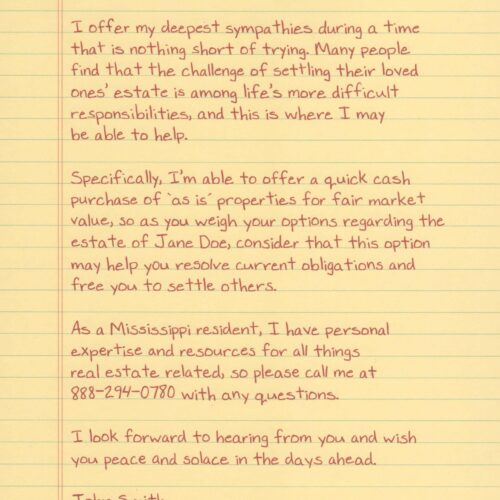 I offer my deepest sympathies during a time
that is nothing short of trying. Many people
find that the challenge of settling their loved
ones' estate is among life's more difficult
responsibilities, and this is where I may
be able to help.
Specifically, I'm able to offer a quick cash
purchase of 'as is' properties for fair market
value, so as you weigh your options regarding the
estate of Jane Doe, consider that this option
may help you resolve current obligations and
free you to settle others.
As a Mississippi resident, I have personal
expertise and resources for all things
real estate related, so please call me at
888-294-0780 with any questions.
I look forward to hearing from you and wish
you peace and solace in the days ahead.
John Smith